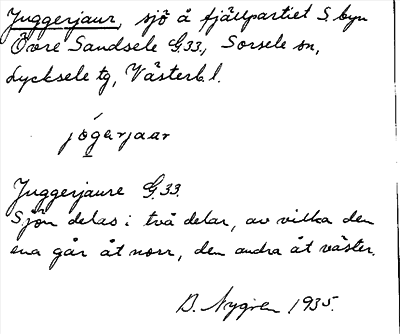 Juggerjaur, sjö å fjällpartiet S. byn
Övre Sandsele G.33, Sorsele sn,
Lycksele tg, Västerb. l.
jógerjaar
Juggerjaure G.33.
Sjön delas i två delar, av vilka den
ena går åt norr, den andra åt väster.
B. Nygren 1935.